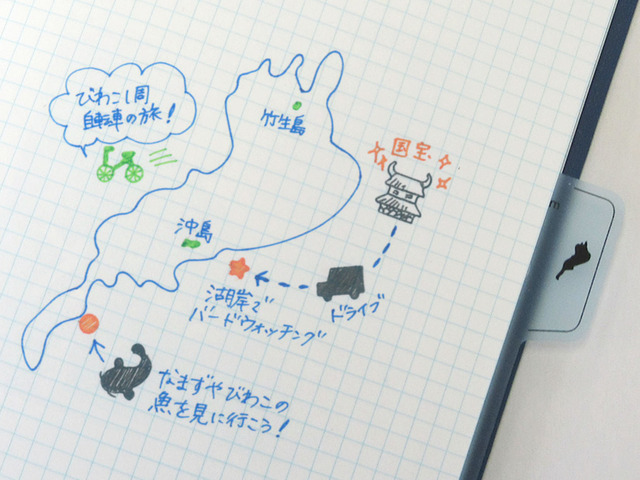 びわこ1周
自転車の旅!
竹生島
国宝
沖島
湖岸で
バードウォッチング
ドライブ
なまずやびわこの
魚を見に行こう!